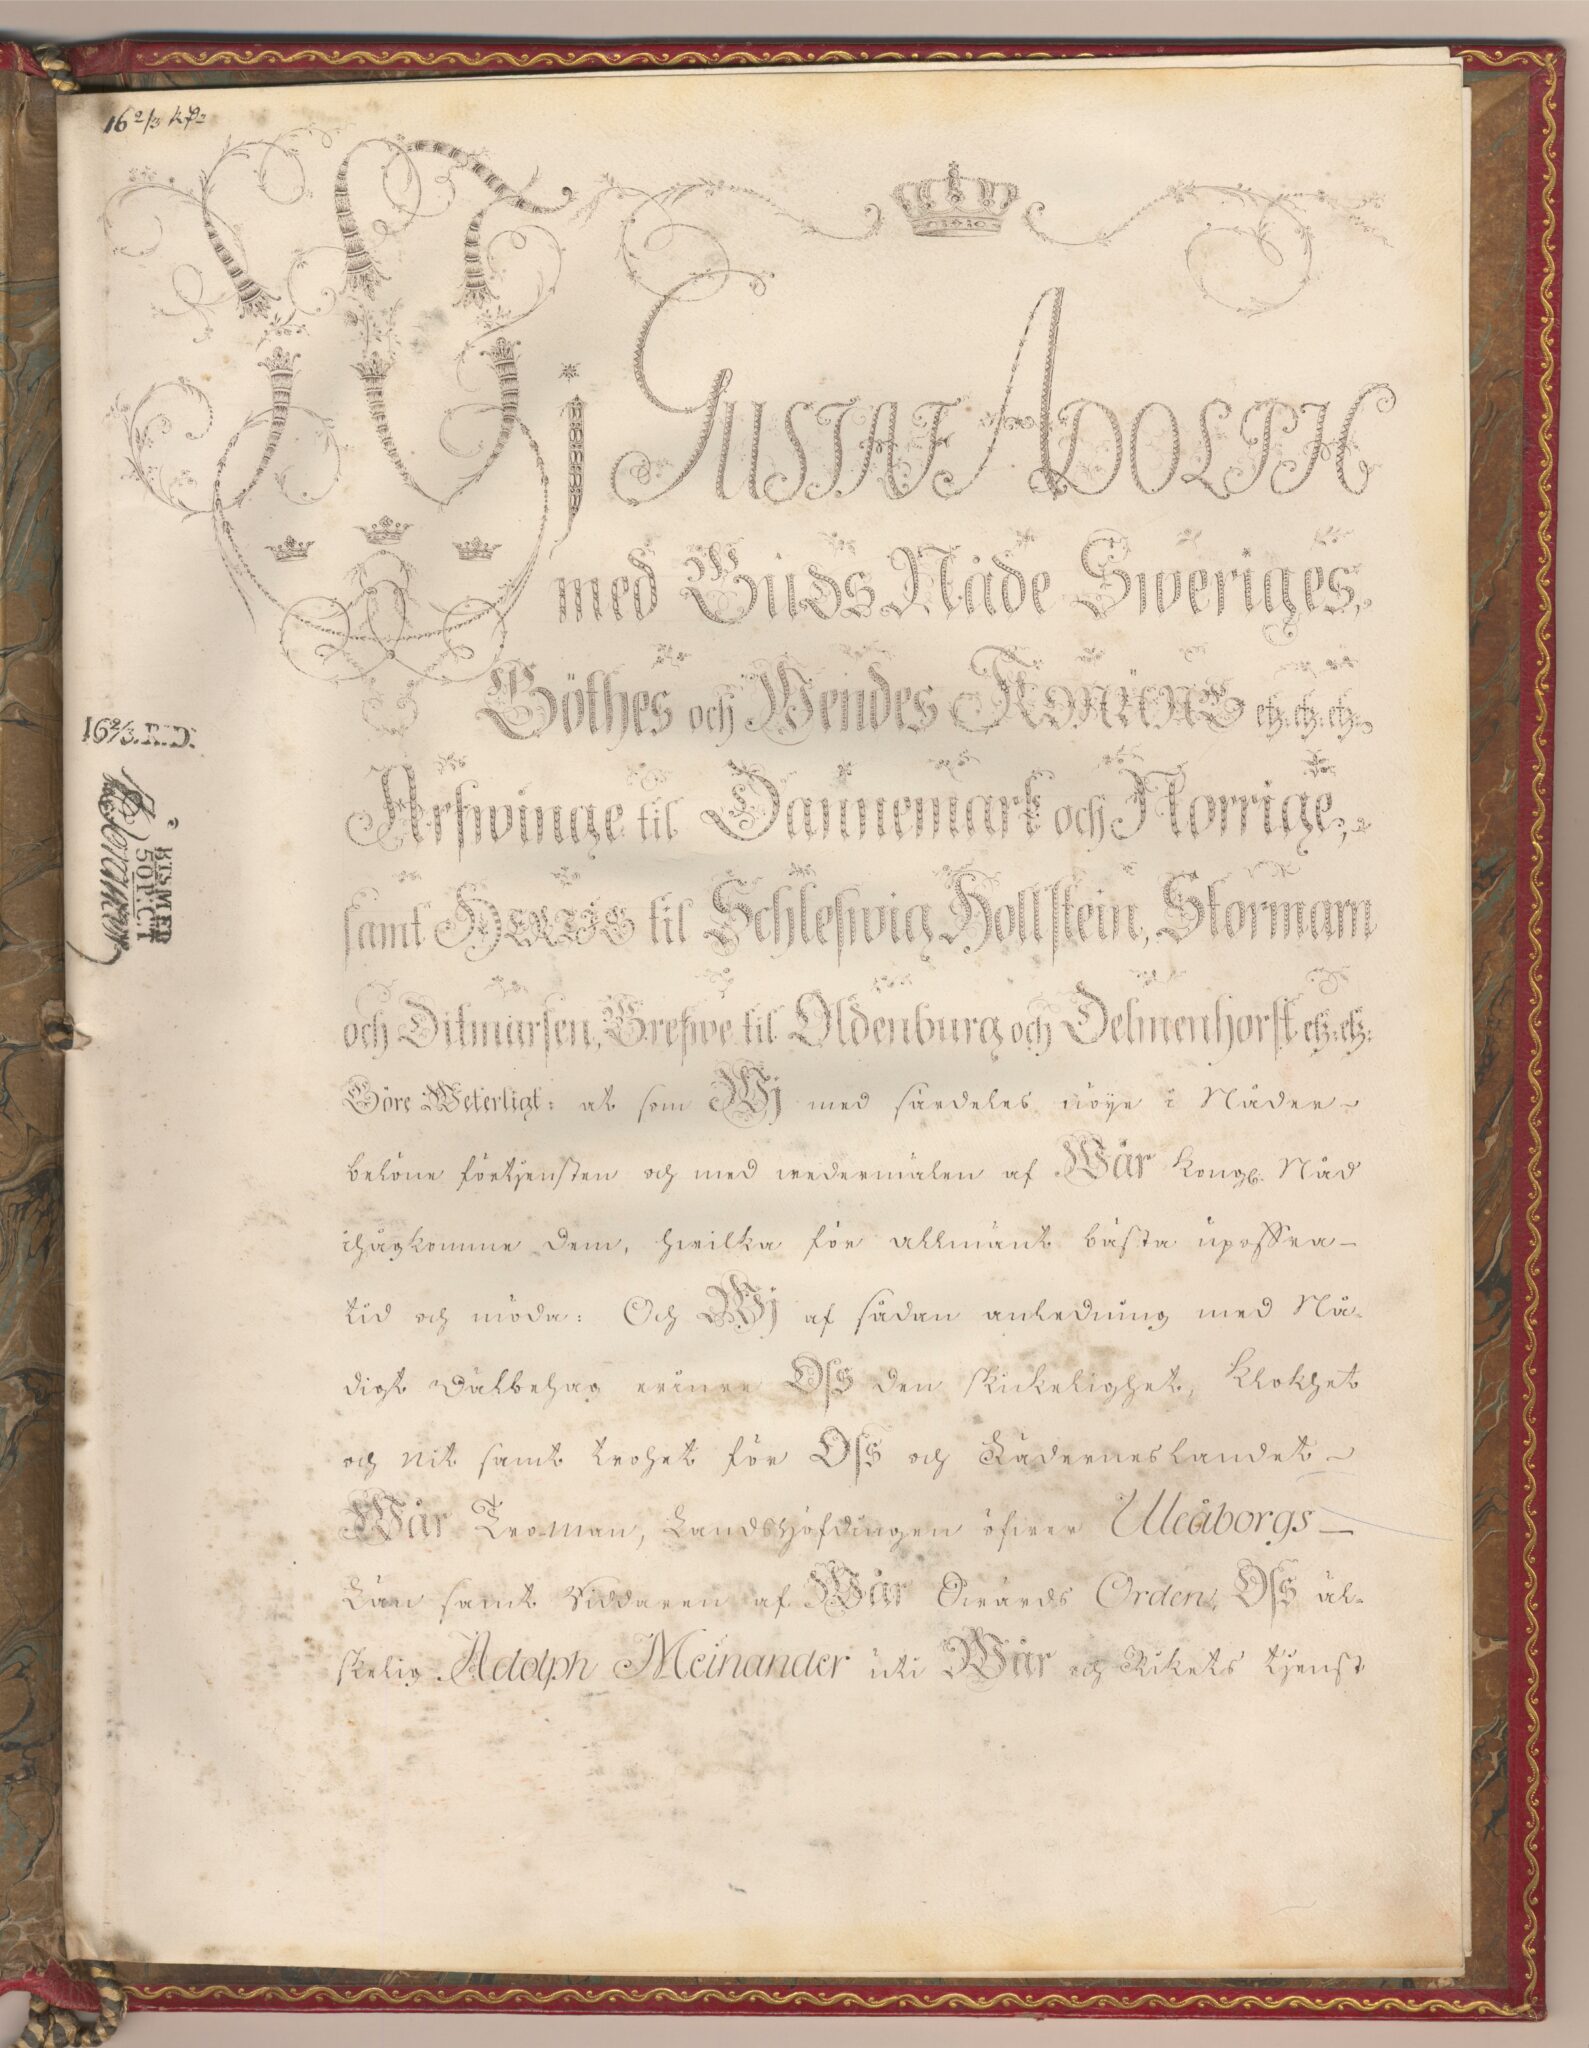 16 2/3
Wj GUSTAF ADOLPH
med Guds Nåde Sweriges,
Göthes och Wendes KONUNG etz: etz: etz:
Arfwinge til Dannemark och Norrige,
samt HERTIG til Schleswig Hollstein, Stormarn
och Ditmarsen, Grefwe til Oldenburg och Delmenhorst etz: etz:
Göre Weterligt: at som Wj med särdeles nöye i Nåder
belöne förtjensten och med wedermälen af Wår Kongl. Nåd
ihågkomme dem, hwilka för allmänt bästa upoffra
tid och möda: Och Wj af sådan anledning med Nå-
digt Wälbehag erinre Oss den skickelighet, Klokhet
och nit samt trohet för Oss och Fäderneslandet
Wår Troman, Landshöfdingen öfwer Uleåborgs
Län samt Riddaren af Wår Swärds Orden, Oss äl-
skelig Adolph Meinander uti Wår och Rikets tjenst
16 2/3. R.D.